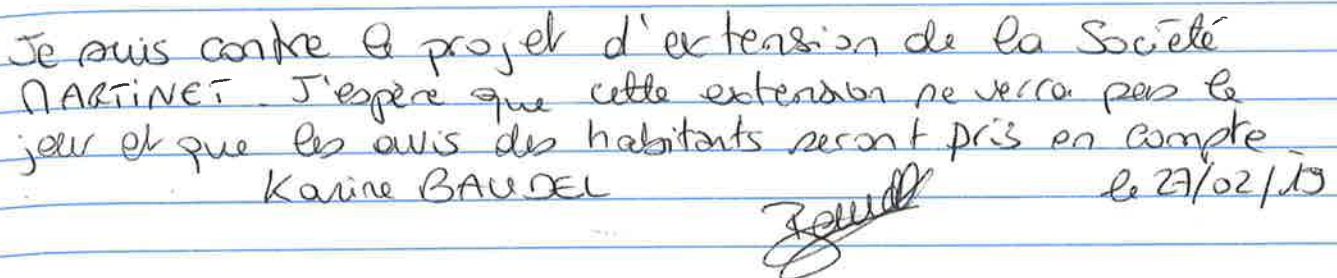 Je suis contre le projet d'extension de la Société
MARTINET. J'espère que cette extension ne verra pas le
jour et que les avis des habitants seront pris en compte
Karine BAUDEL le 27/02/19